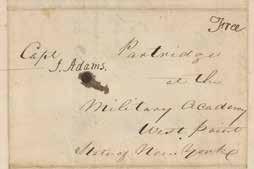 Free
Capt Partridge
J. Adams.
at the
Military Academy
West Point
State of New Yorke